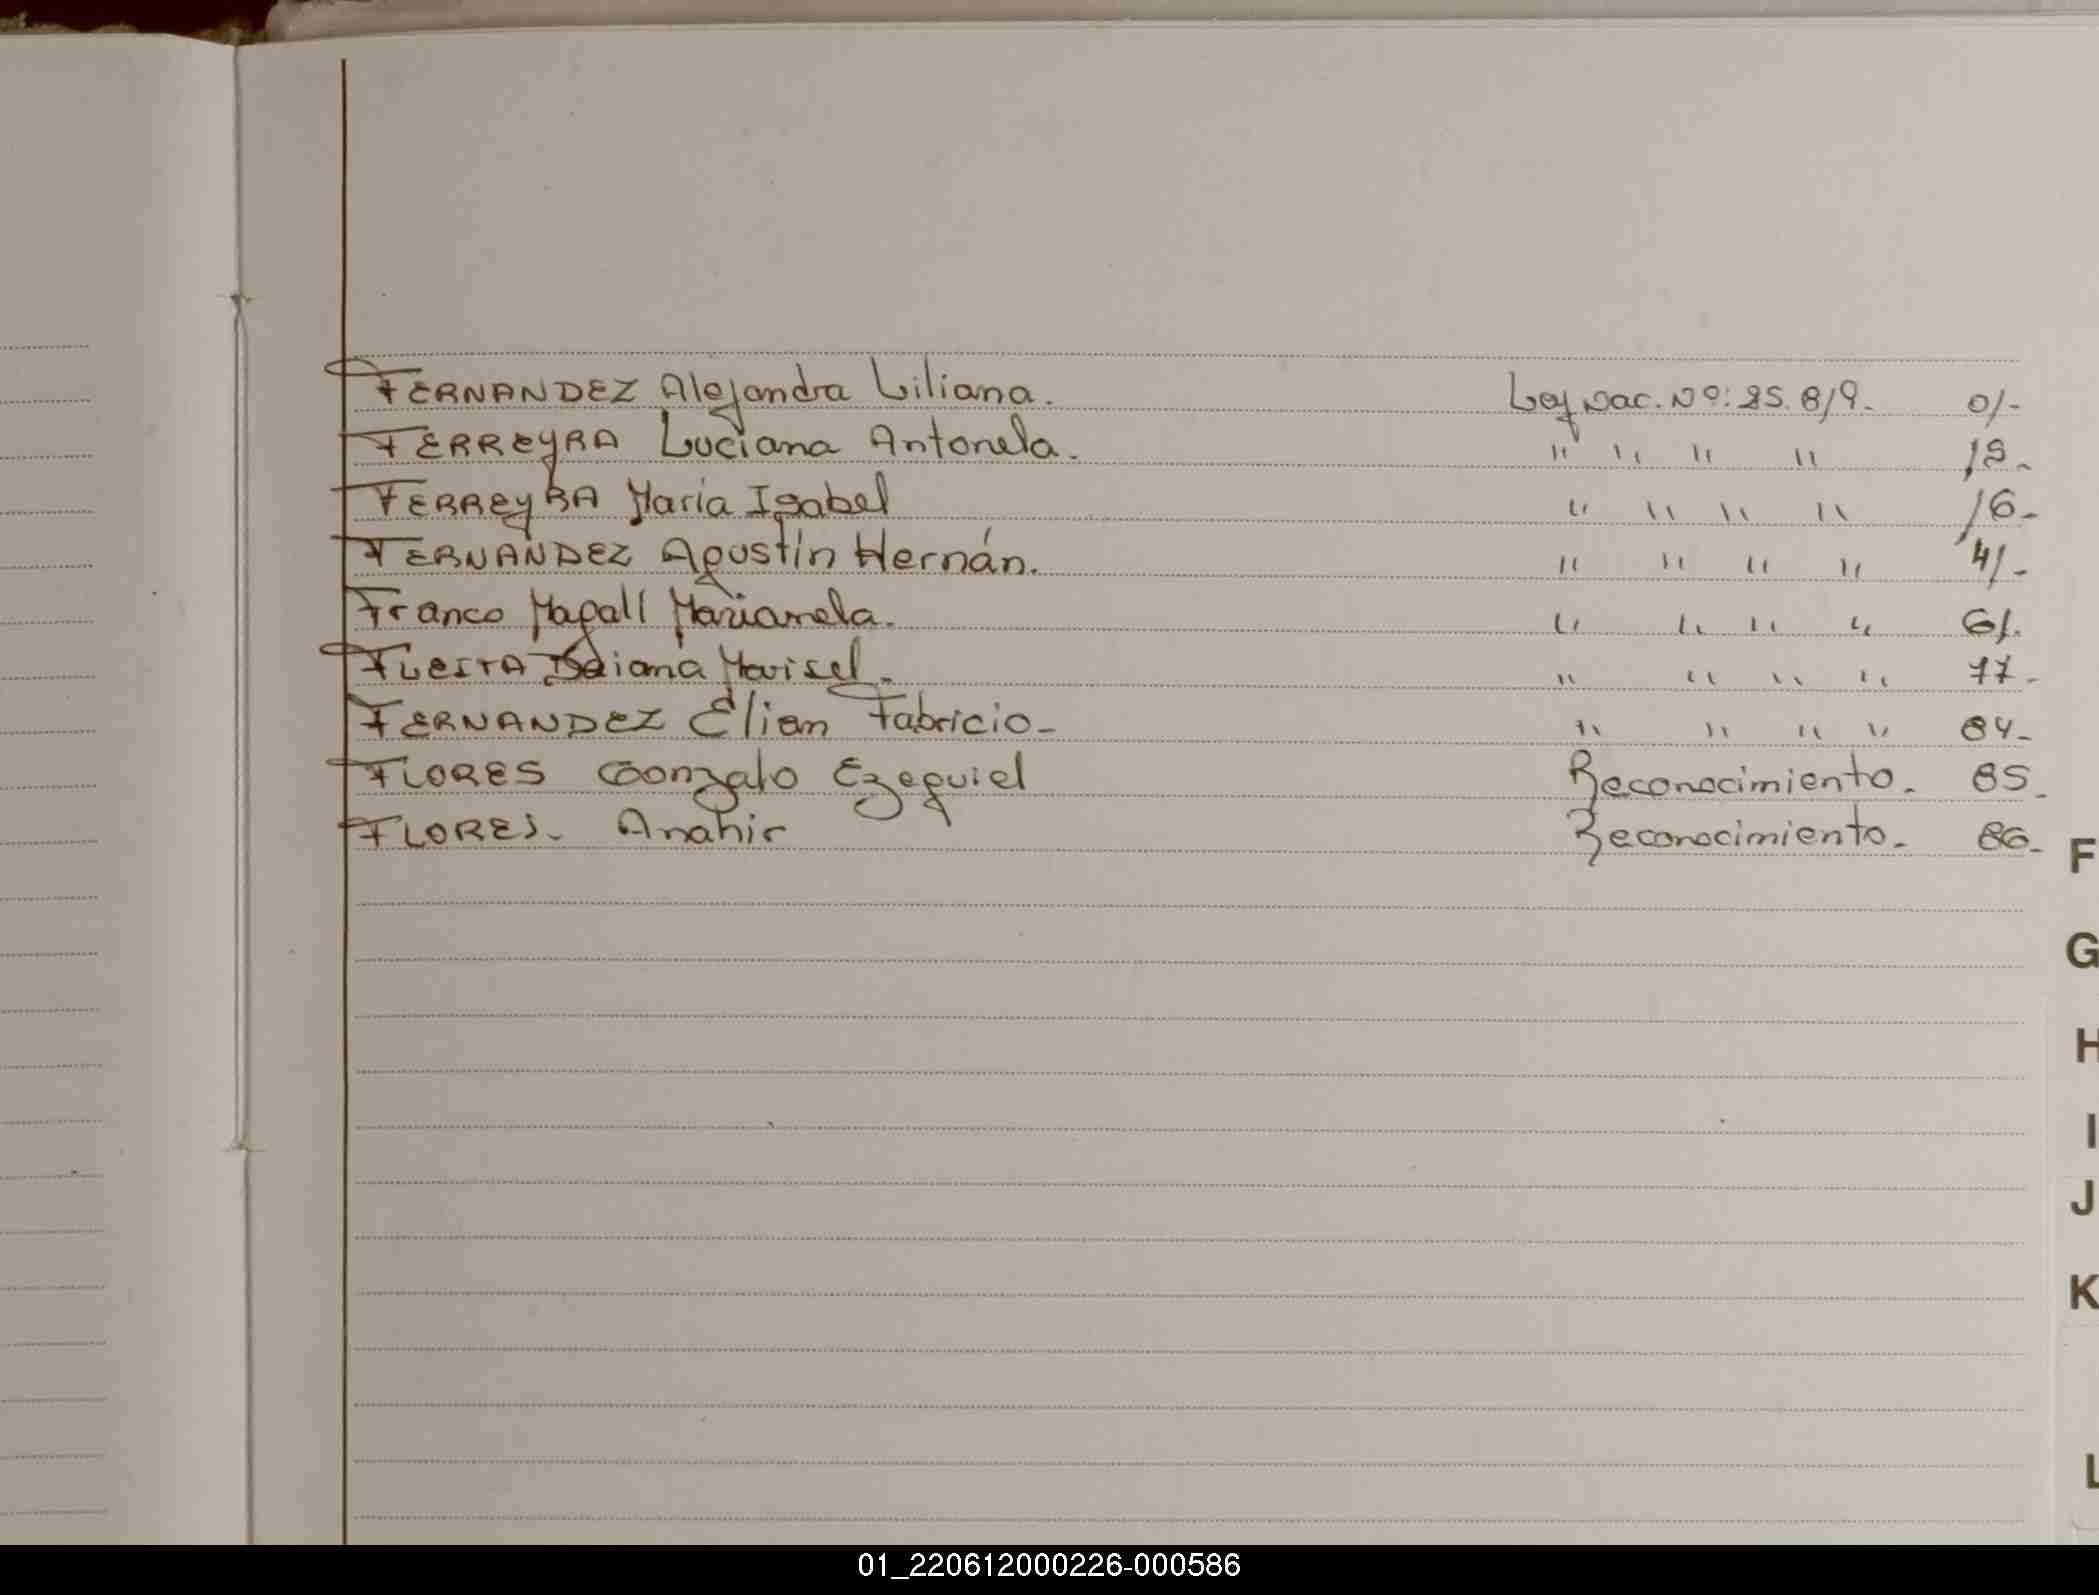 FERNANDEZ Alejandra Liliana. Ley Nac. Nº: 25.819. 01-
FERREYRA Luciana Antonela. " " " " 15.
FERREYRA Maria Isabel " " " " 16-
FERNANDEZ Agustín Hernán. " " " " 41-
Franco Magalí Marianela. " " " " 61.
Daiana Marisel. " " " " 77-
FERNANDEZ Elian Fabricio- " " " " 84-
FLORES Gonzalo Ezequiel Reconocimiento. 85.
FLORES. Anahir Reconocimiento. 86.
F
G
H
I
J
K
L
01_220612000226-000586